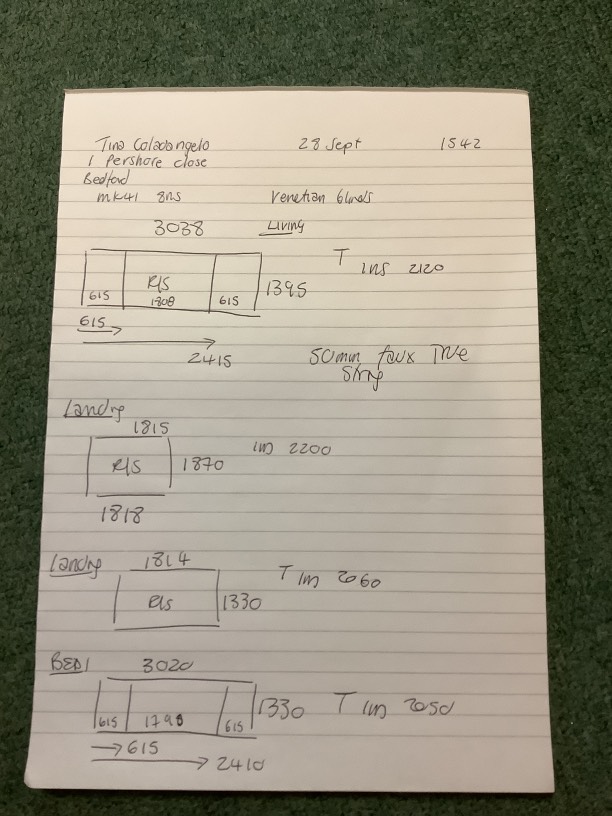 Tina Coladangelo 28 Sept 1542
1 Pershore close
Bedford
MK41 8NS Venetian blinds
3038 Living
T ins 2120
615 R/S 1808 615 1395
615
2415
50mm faux True
String
Landry
1815
R/S 1870 im 2200
1818
Landry 1814
T im 2060
R/s 1330
BED1 3020
615 1790 615 1330 T im 2050
615
2410